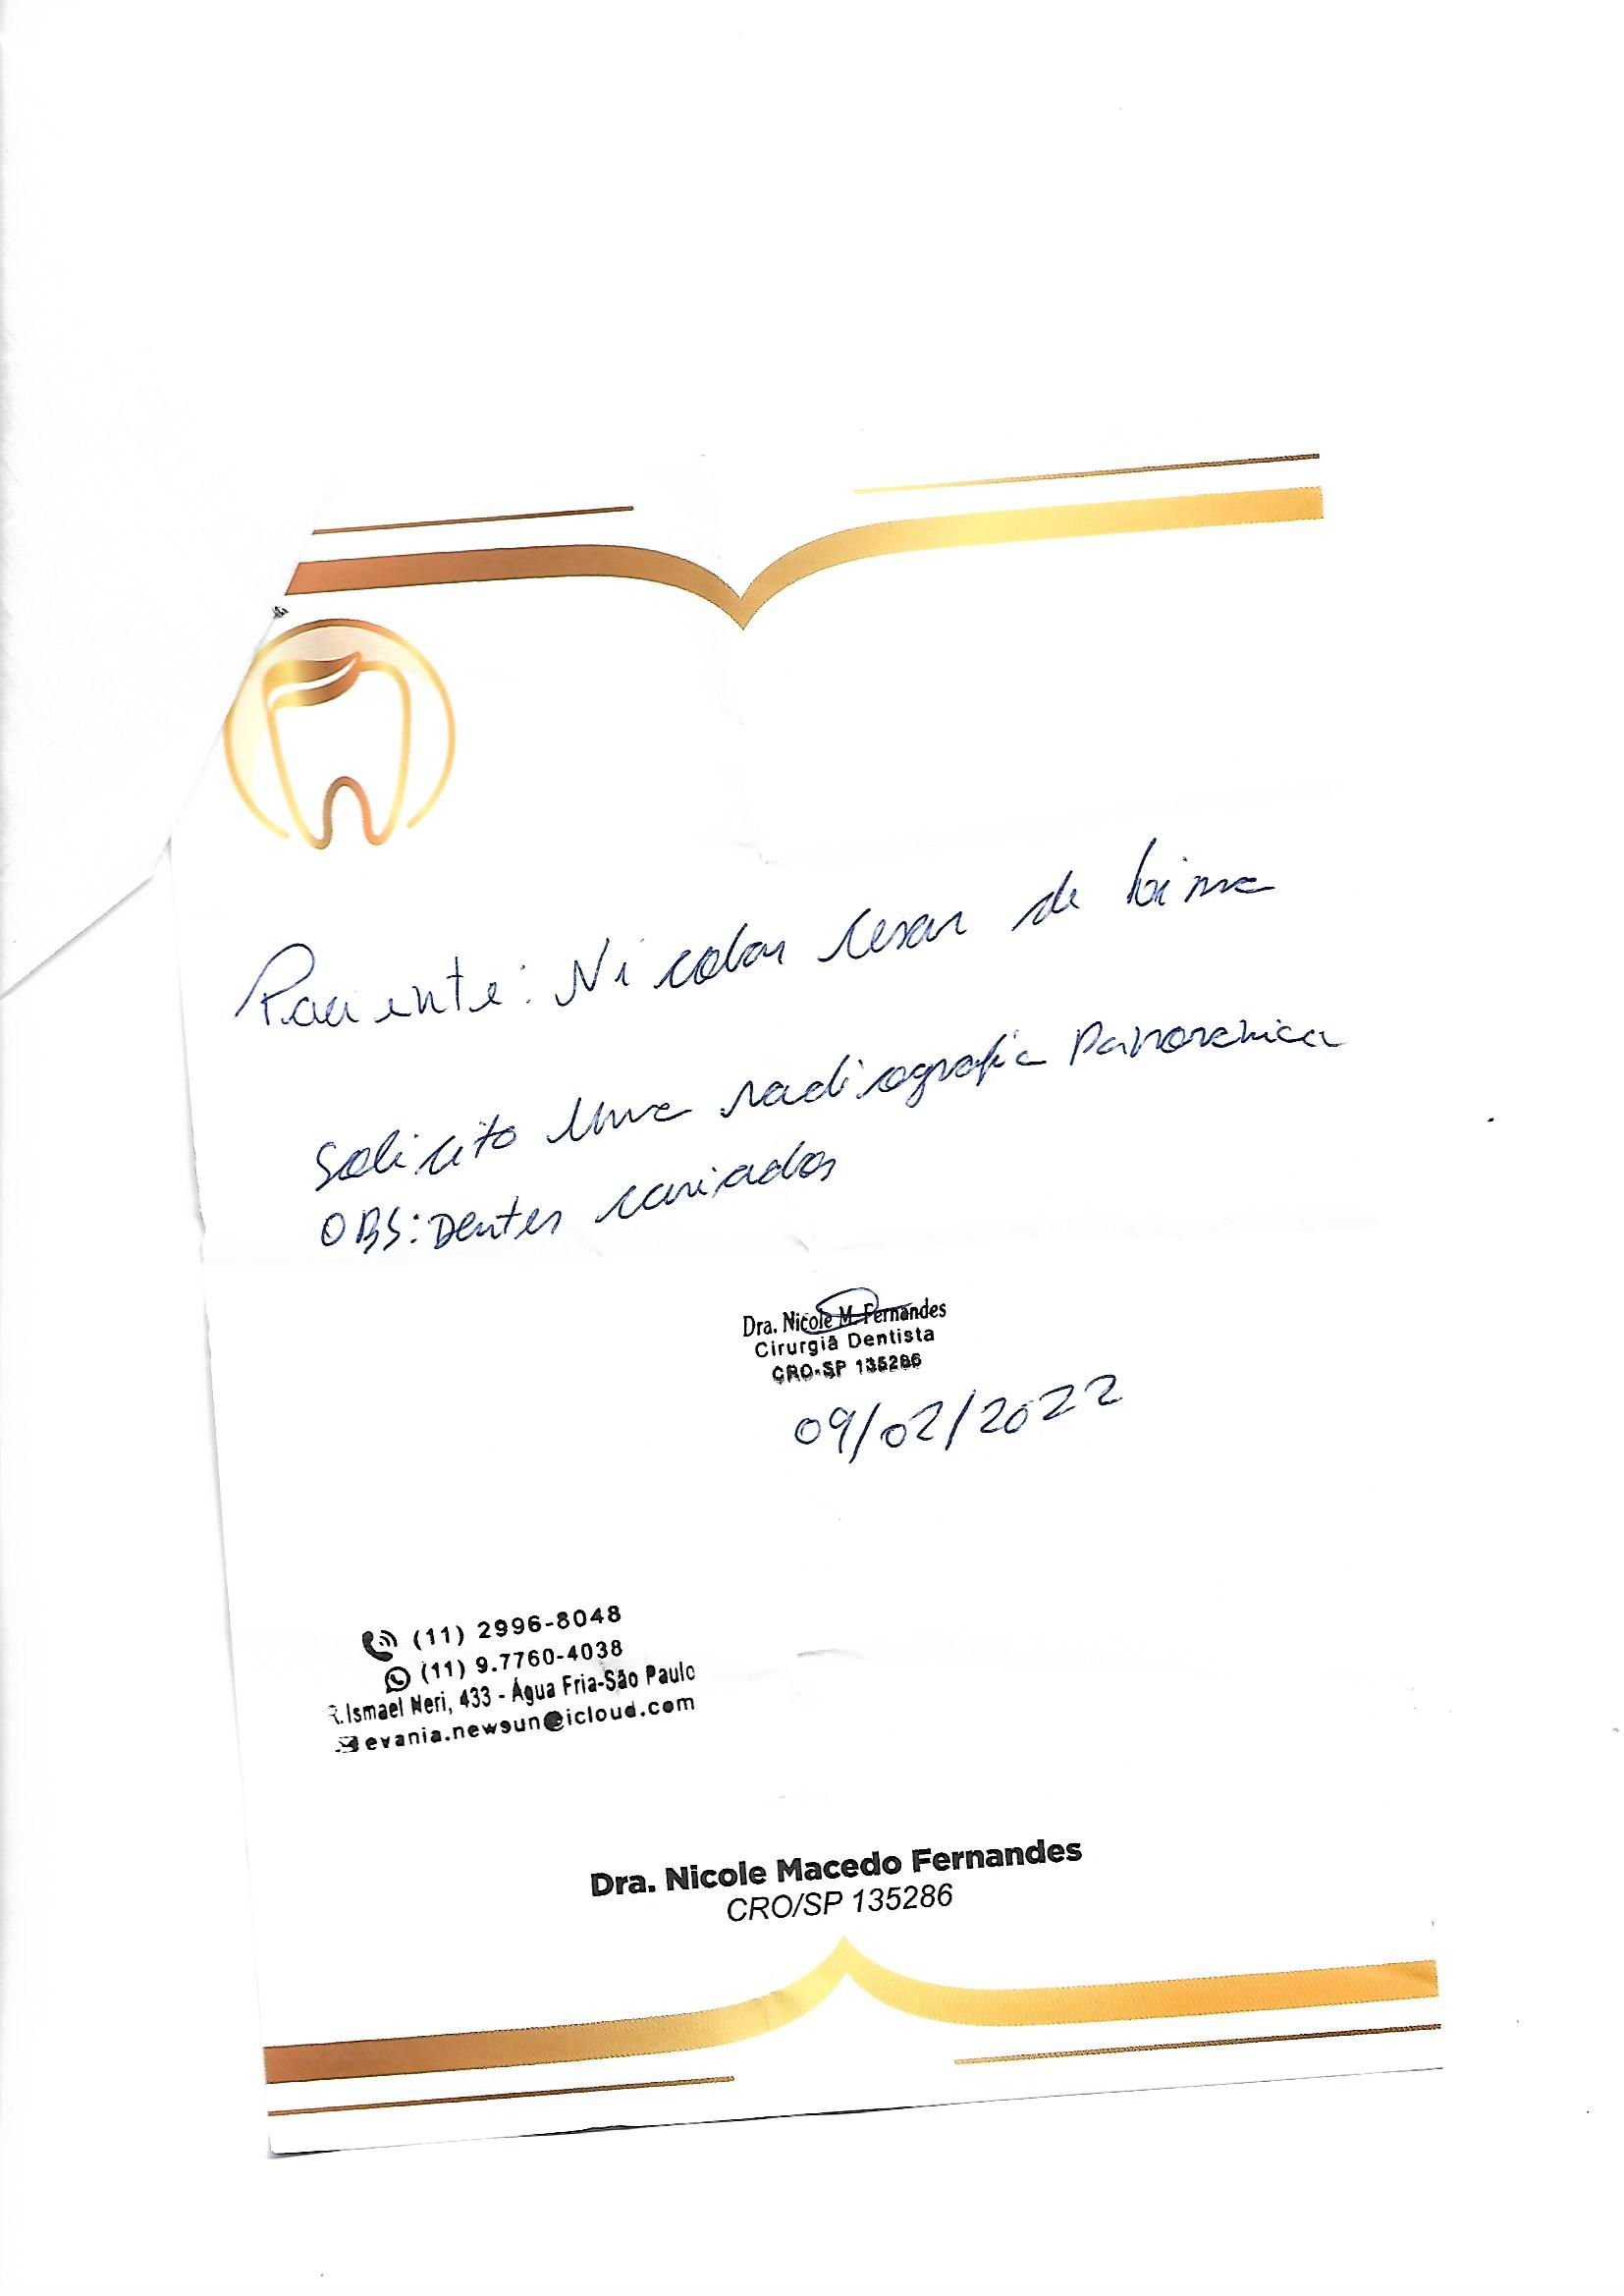 Paciente: Nicolas Cesar de Lima
Solicito uma radiografia Panoramica
OBS: Dentes cariados
Dra. Nicole M. Fernandes
Cirurgiã Dentista
CRO-SP 135286
09/02/2022
(11) 2996-8048
(11) 9.7760-4038
R. Ismael Neri, 433 - Água Fria-São Paulo
evania.newsun@icloud.com
Dra. Nicole Macedo Fernandes
CRO/SP 135286